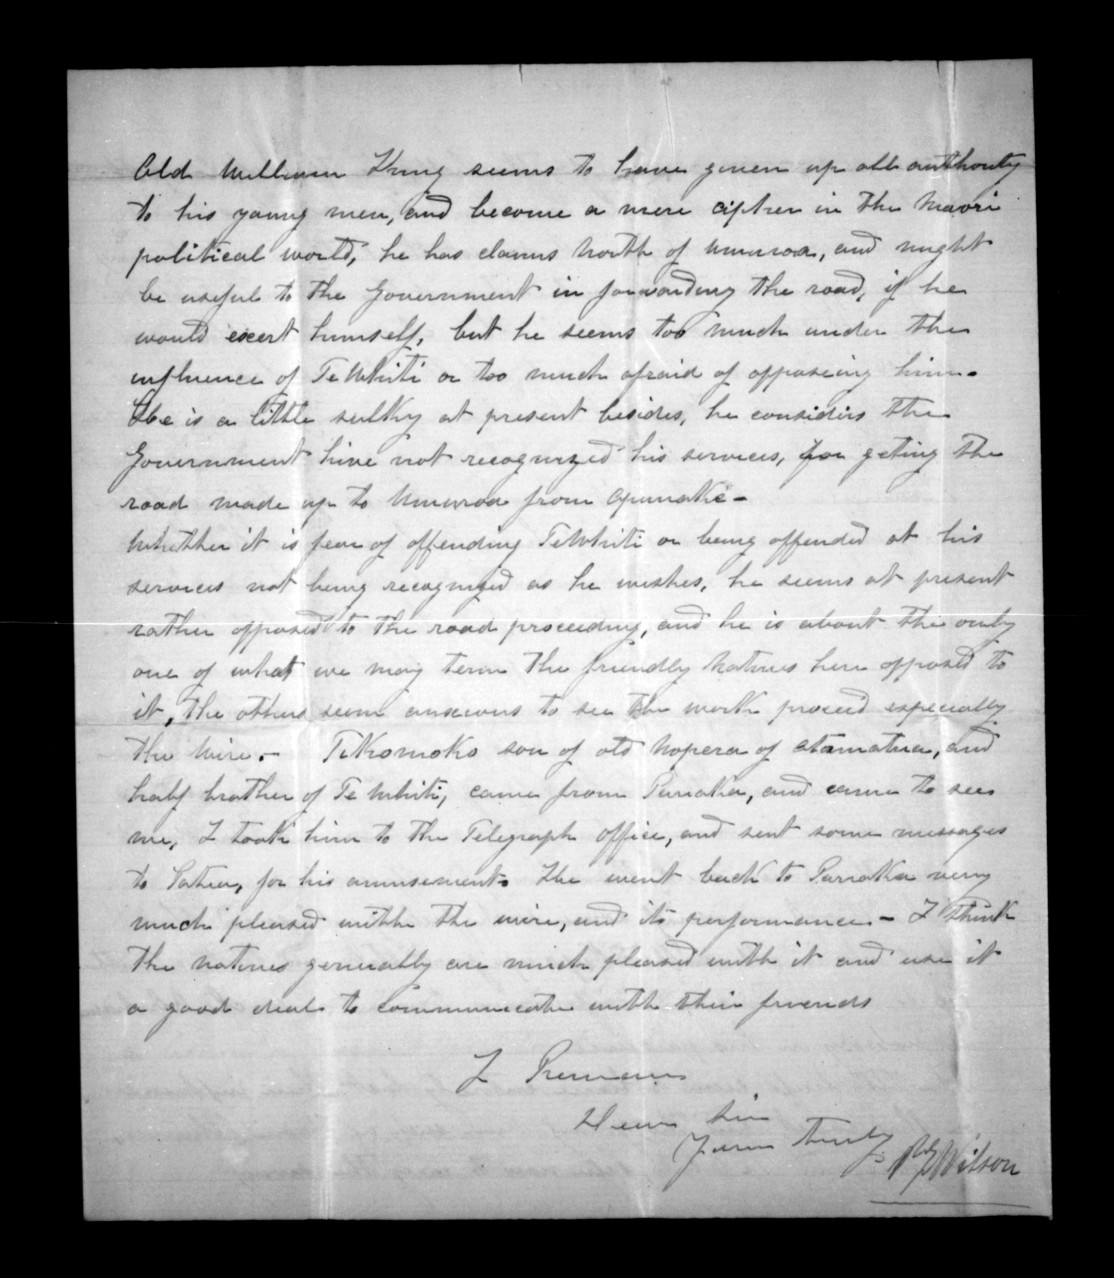 Old William King seems to have given up all authority
to his young men, and become a mere cipher in the Maori
political world, he has claims North of Umuroa, and might
be useful to the Government in forwarding the road, if he
would exert himself, but he seems too much under the
influence of TeWhiti or too much afraid of opposeing him.
He is a little sulky at present besides, he considers the
Government hive not recognized his services, for geting the
road made up to Umuroa from Opunake -
Whether it is fear of offending TeWhiti or being offended at his
services not being recognized as he wishes, he seems at present
rather opposed to the road proceeding, and he is about the only
one of what we may term the friendly Natives here opposed to
it, the others seem anxious to see the work proceed especially
the wire. - TeKomoko son of old Nopera of and
half brother of Te Whiti, came from Pariaka, and came to see
me, I took him to the Telegraph office, and sent some messages
to Patea, for his amusement. He went back to Pariaka very
much pleased with the wire, and its performance - I think
the natives generally are much pleased with it and use it
a good deal to communicate with their friends
I Remain
Dear Sir
Yours truly
Wilson